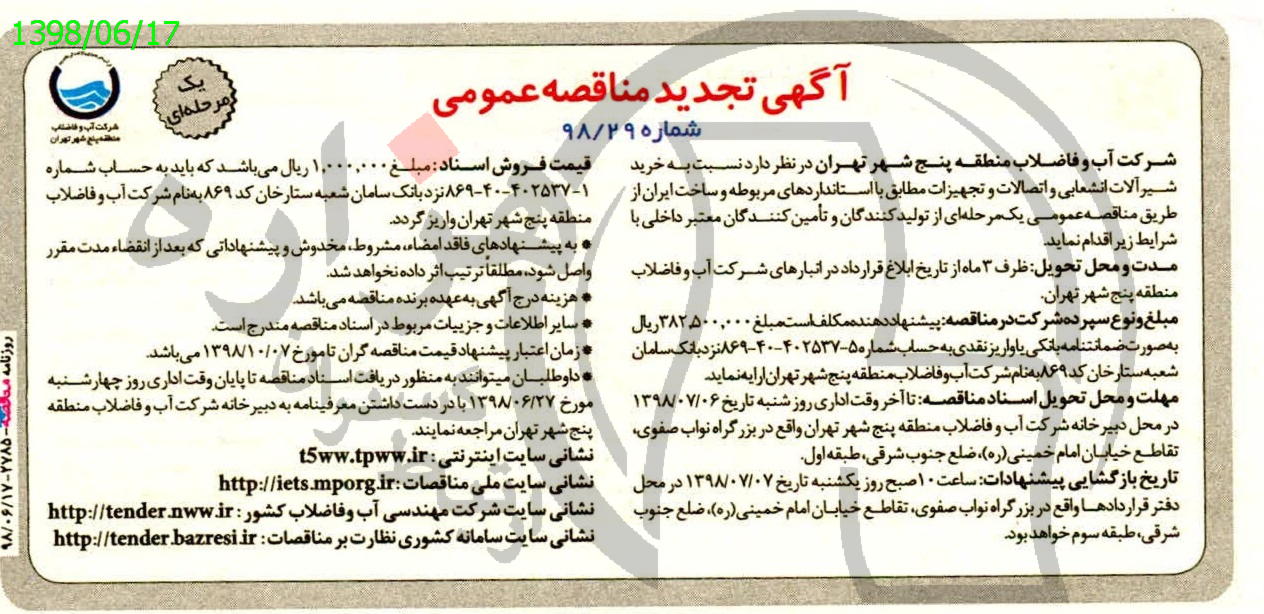 1398/06/17
شرکت آب و فاضلاب
منطقه پنج شهر تهران
یک
مرحله‌ای
آگهی تجدید مناقصه عمومی
شماره ۹۸/۲۹
شرکت آب و فاضلاب منطقه پنج شهر تهران در نظر دارد نسبت به خرید
شیرآلات انشعابی و اتصالات و تجهیزات مطابق با استانداردهای مربوطه و ساخت ایران از
طریق مناقصه عمومی یک‌مرحله‌ای از تولیدکنندگان و تأمین‌کنندگان معتبر داخلی با
شرایط زیر اقدام نماید.
مدت و محل تحویل: ظرف ۳ ماه از تاریخ ابلاغ قرارداد در انبارهای شرکت آب و فاضلاب
منطقه پنج شهر تهران.
مبلغ و نوع سپرده شرکت در مناقصه: پیشنهاددهنده مکلف است مبلغ ۳۸۲,۵۰۰,۰۰۰ ریال
به‌صورت ضمانتنامه بانکی یا واریز نقدی به حساب شماره ۵-۴۰۲۵۳۷-۴۰-۸۶۹ نزد بانک سامان
شعبه ستارخان کد ۸۶۹ به‌نام شرکت آب و فاضلاب منطقه پنج شهر تهران ارایه نماید.
مهلت و محل تحویل اسناد مناقصه: تا آخر وقت اداری روز شنبه تاریخ ۱۳۹۸/۰۷/۰۶
در محل دبیرخانه شرکت آب و فاضلاب منطقه پنج شهر تهران واقع در بزرگراه نواب صفوی،
تقاطع خیابان امام خمینی (ره)، ضلع جنوب شرقی، طبقه اول.
تاریخ بازگشایی پیشنهادات: ساعت ۱۰ صبح روز یکشنبه تاریخ ۱۳۹۸/۰۷/۰۷ در محل
دفتر قراردادها واقع در بزرگراه نواب صفوی، تقاطع خیابان امام خمینی (ره)، ضلع جنوب
شرقی، طبقه سوم خواهد بود.
قیمت فروش اسناد: مبلغ ۱,۰۰۰,۰۰۰ ریال می‌باشد که باید به حساب شماره
۱-۴۰۲۵۳۷-۴۰-۸۶۹ نزد بانک سامان شعبه ستارخان کد ۸۶۹ به‌نام شرکت آب و فاضلاب
منطقه پنج شهر تهران واریز گردد.
* به پیشنهادهای فاقد امضاء، مشروط، مخدوش و پیشنهاداتی که بعد از انقضاء مدت مقرر
واصل شود، مطلقاً ترتیب اثر داده نخواهد شد.
* هزینه درج آگهی به عهده برنده مناقصه می‌باشد.
* سایر اطلاعات و جزییات مربوط در اسناد مناقصه مندرج است.
* زمان اعتبار پیشنهاد قیمت مناقصه گران تا مورخ ۱۳۹۸/۱۰/۰۷ می‌باشد.
* داوطلبان میتوانند به منظور دریافت اسناد مناقصه تا پایان وقت اداری روز چهارشنبه
مورخ ۱۳۹۸/۰۶/۲۷ با در دست داشتن معرفینامه به دبیرخانه شرکت آب و فاضلاب منطقه
پنج شهر تهران مراجعه نمایند.
نشانی سایت اینترنتی: t5ww.tpww.ir
نشانی سایت ملی مناقصات: http://iets.mporg.ir
نشانی سایت شرکت مهندسی آب و فاضلاب کشور: http://tender.nww.ir
نشانی سایت سامانه کشوری نظارت بر مناقصات: http://tender.bazresi.ir
روزنامه مناقصه-۲۷۸۵-۹۸/۰۶/۱۷
هزاره